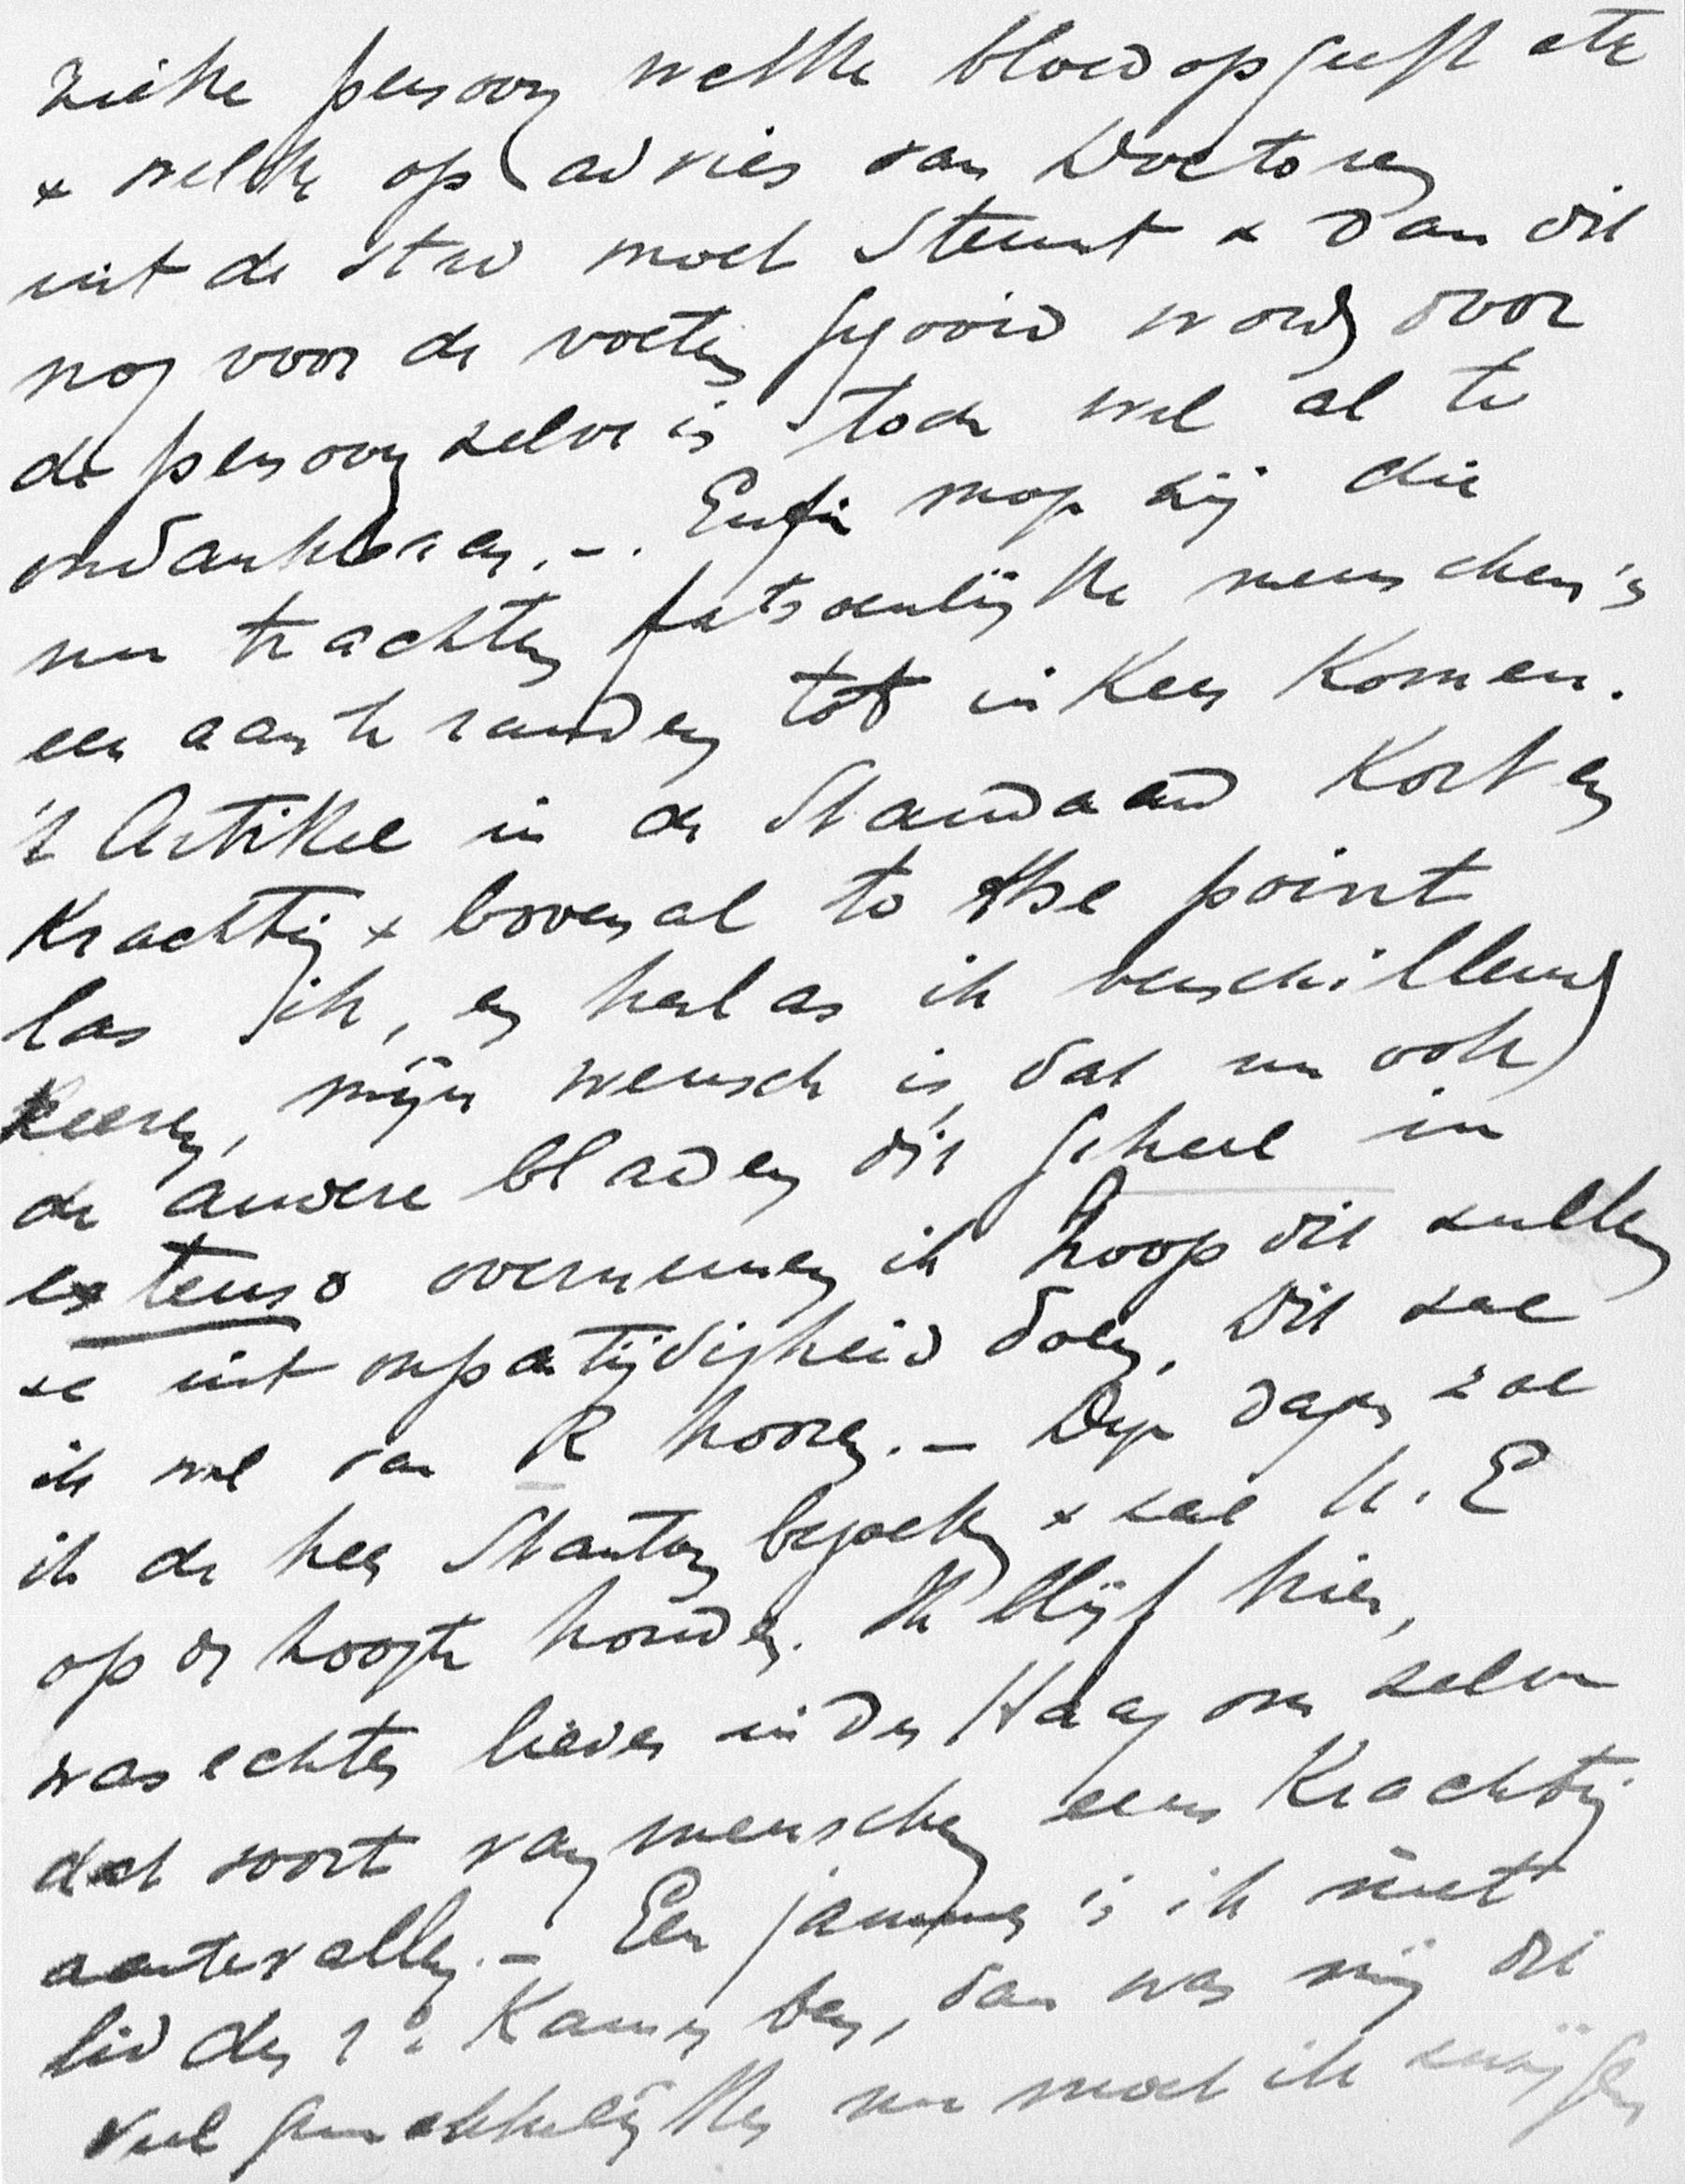 zieke persoon welke bloed opgeeft etc
& welke op advies van Doctoren
uit de stad moet steunt & dan dit
nog voor de voeten gegooid wordt door
de persoon zelve is toch wel al te
ondankbaar. -. Enfin mog zij die
nu trachten fatsoenlijke menschen 's
een aan te randen tot inkeer komen.
't Artikel in de Standaard Kort en
Krachtig & bovenal to the point
las ik, en herlas ik verschillende
keeren, mijn wensch is, dat nu ook
de andere bladen dit geheel in
extenso overnemen ik hoop dit zullen
ze uit onpatijdigheid doen. Dit zal
ik wel van R hooren. - Deze dagen zal
ik de heer Stanton bezoeken & zal U. E
op de hoogte houden. Ik blijf hier,
was echter liever in den Haag om zelve
dat soort van menschen eens Krachtig
aantevallen. - Een jammer is ik niet
lid der 2e Kamer ben, dan was mij dit
veel gemakkelijker nu moet ik zwijgen